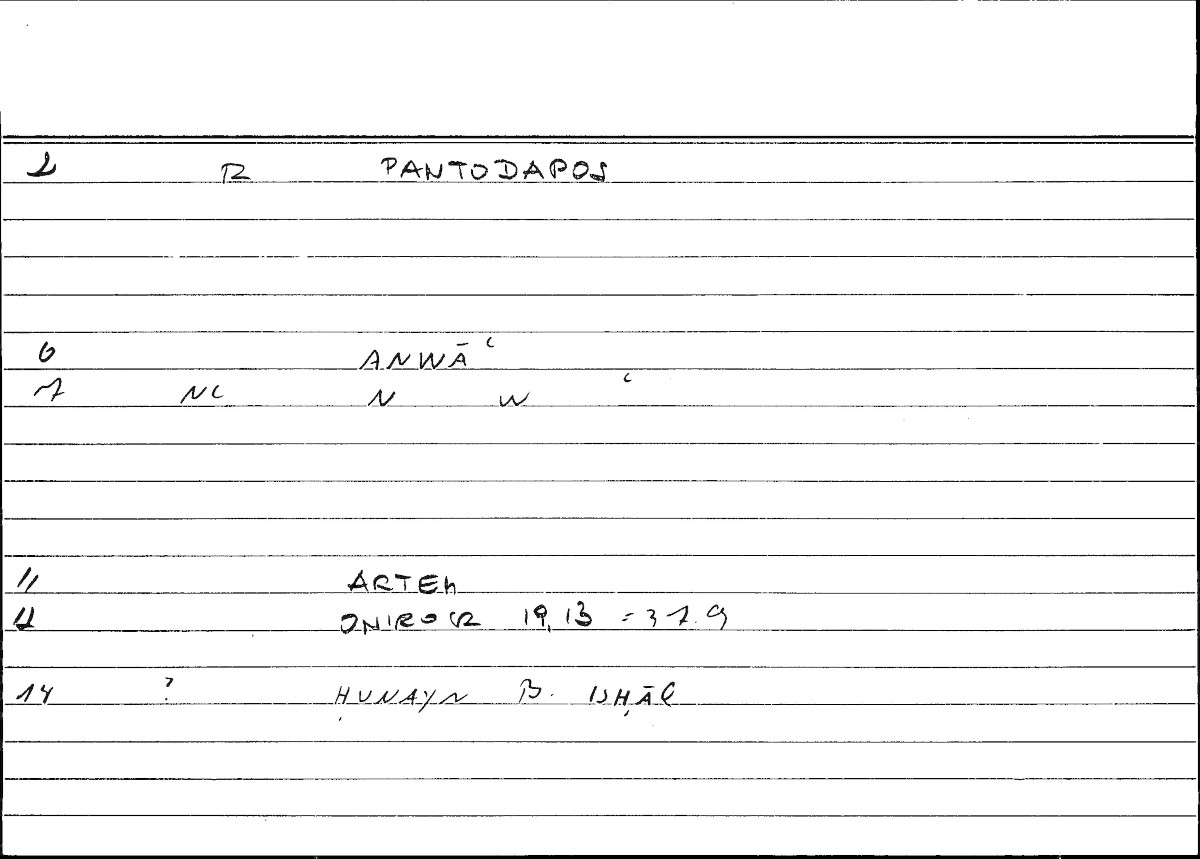 2 R PANTODAPOS
6 ANWĀʿ
7 NC N W ʿ
11 ARTEM
12 ONIROCR 19,13 = 37.9
14 ? ḤUNAYN B. ISḤĀQ